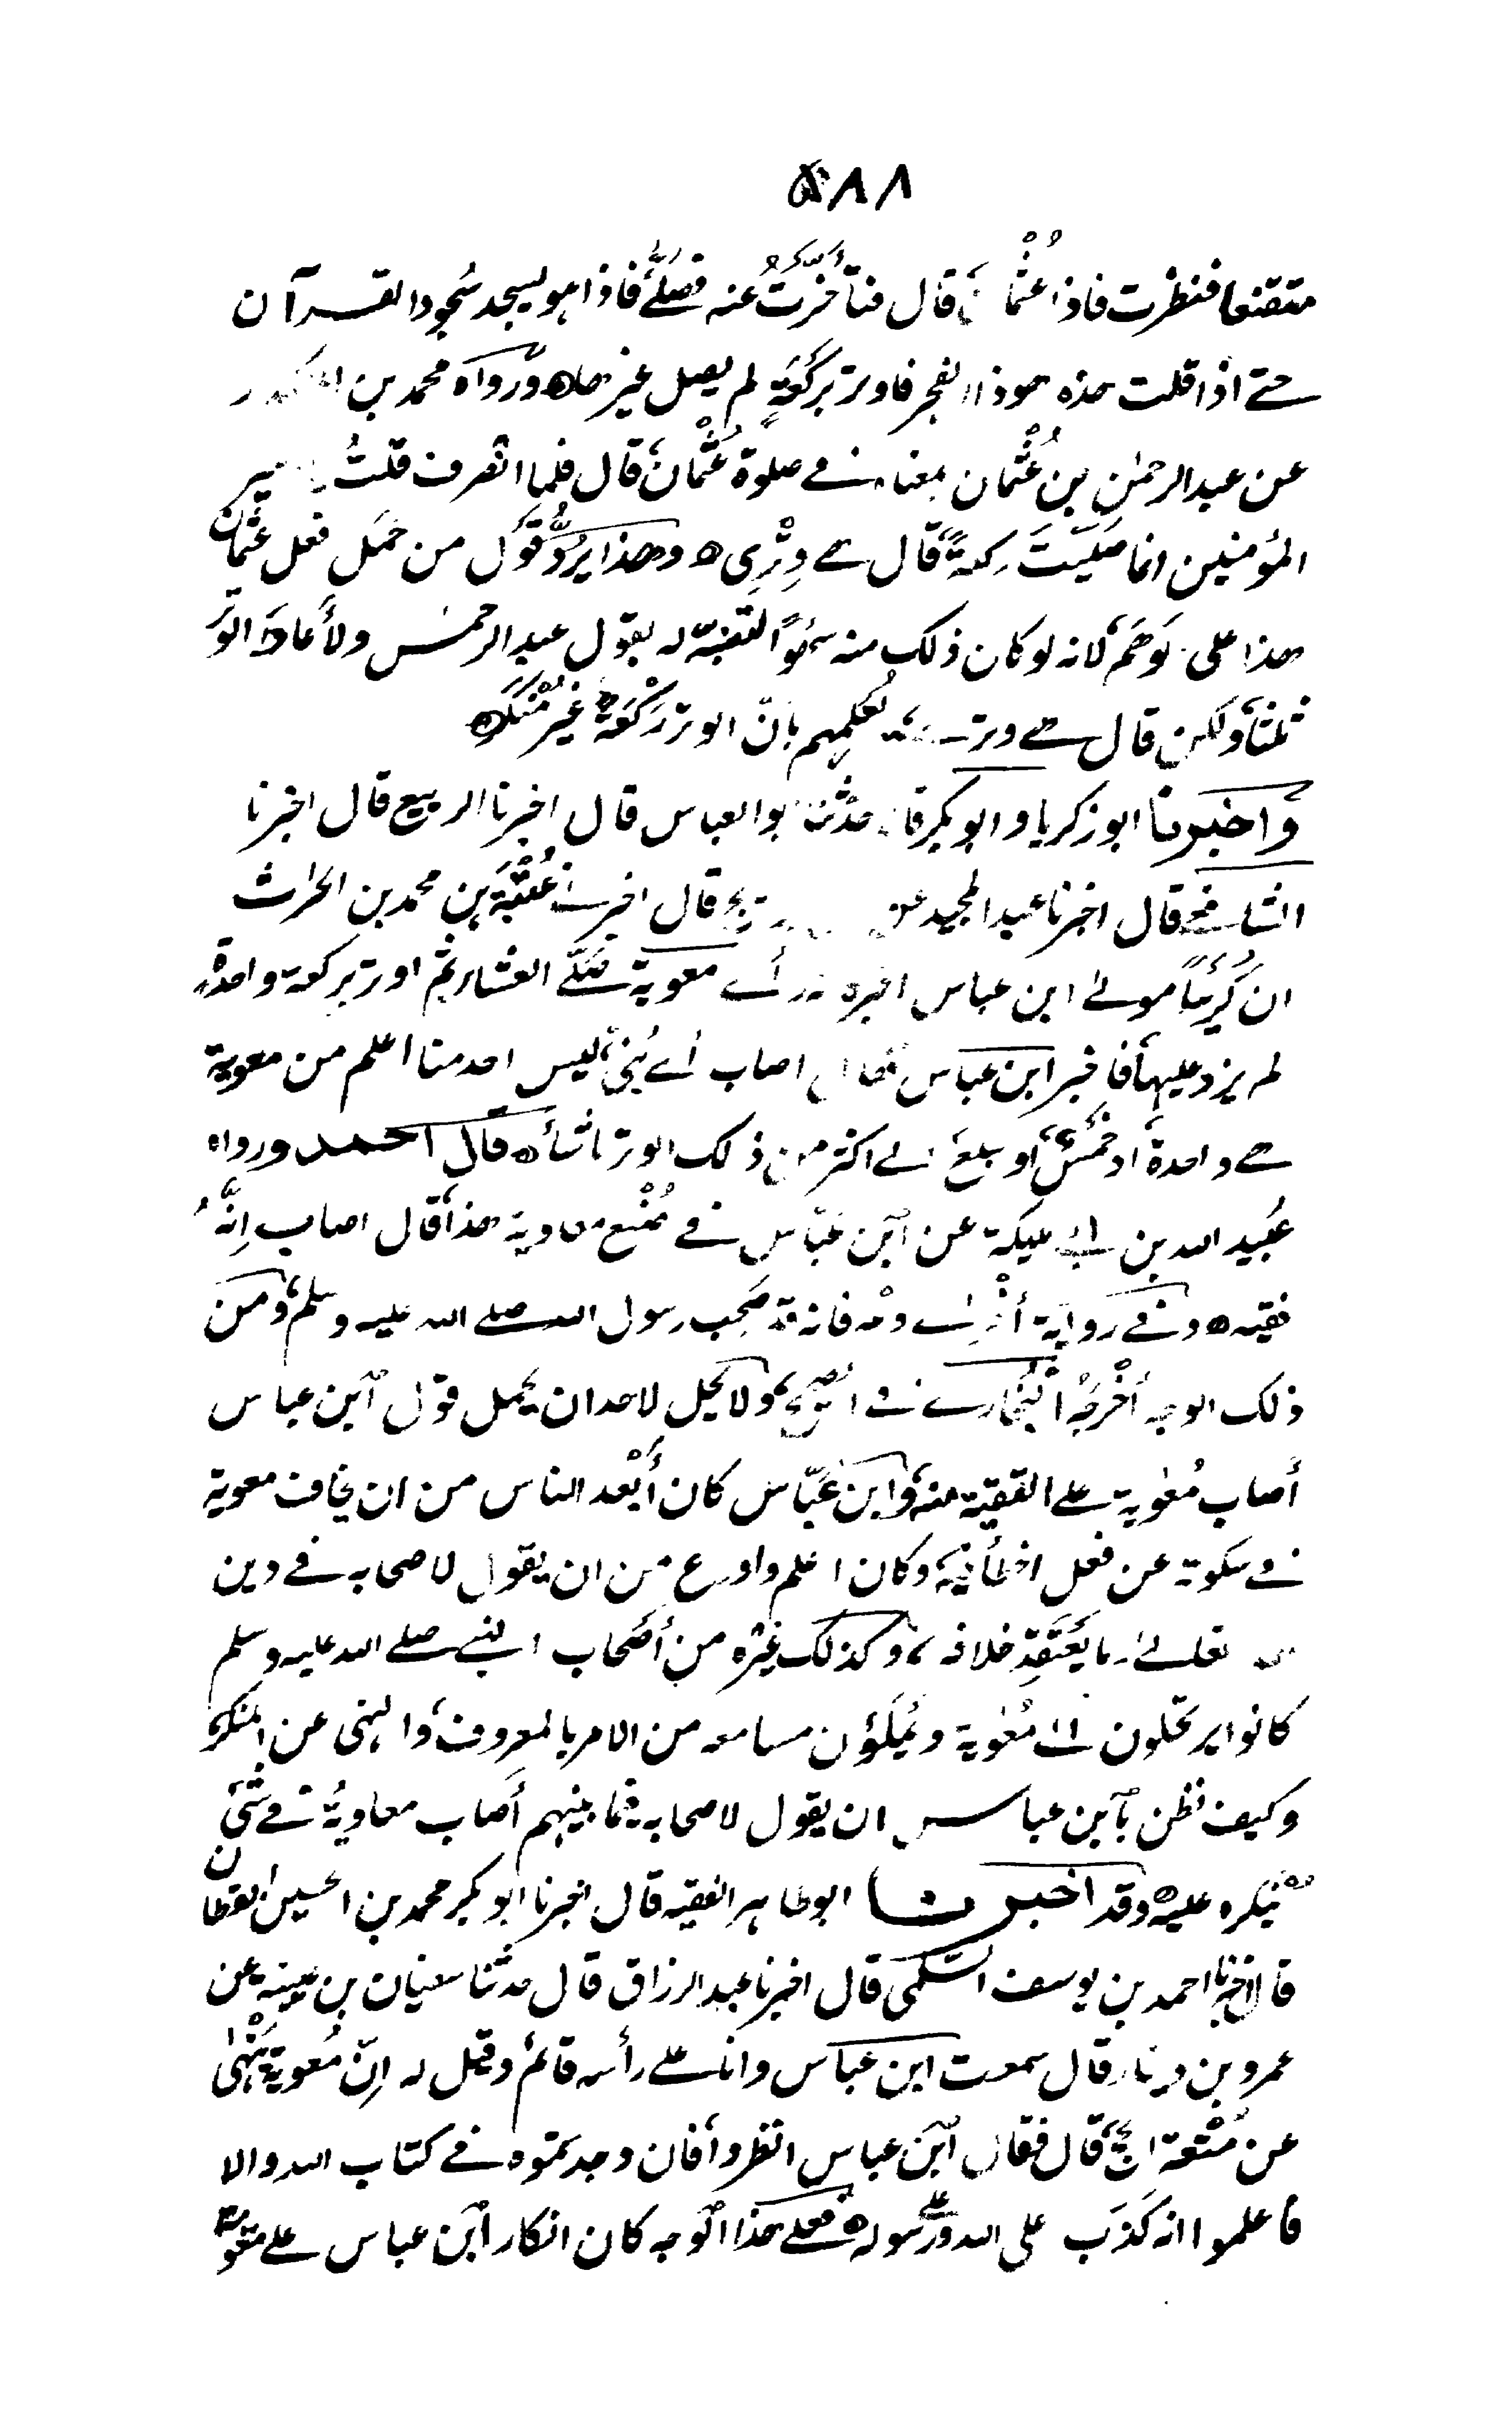 ٥٨٨
متقنعا فنظرت فاذا عُثْمانُ قال فتأخَّرتُ عنه فصَلَّى فاذا هو يسجد سُجود القرآن
حتے اذا قلت هذه هوذا الفجر فاوتر بركعةٍ لم يصل غيرها ه ورواه محمد بن المنكدر
عن عبد الرحمٰن بن عُثْمان بمعناه فے صلوة عُثْمانَ قال فلما انصرف قلتُ يا امير
المؤمنين انما صَلَّيتَ ركعةً قال هے وِتْرِی ه وهذا يردُّ قَوْلَ من حَمَل فعل عُثمان
هذا على توهَّم لانه لو كان ذلك منه سَهْواً لتنبّه له بقول عبد الرحمٰن ولأعادَ الوتر
ثلثاً ولكن قال هے وتری يعلمهم بانّ الوتر رَكْعَةً غيرُ مُنْكَر ه
وَاخبرنا ابو زكريا و ابو بكر قالا حدثنا ابو العباس قال اخبرنا الربيع قال اخبرنا
الشافعے قال اخبرنا عبد المجيد عن ابن جريج قال اخبرنے عُتْبَة بن محمد بن الحٰرث
ان كُرَيْباً مولے ابن عباس اخبره انه رأے معوية صَلَّى العشاء ثم اوتر بركعة واحدةٍ
لم يزد عليها فاخبر ابن عباس فقال اصاب أے بُنَیَّ ليس احد منا اعلم من معوية
هے واحدة أو خَمْسٌ أو سبعٌ الے اكثر من ذلك الوتر ماشأ ه قال احمد ورواه
عُبيد الله بن ابے مليكة عن ابن عَبَّاس فے صُنْع معاوية هذا قال اصاب اِنَّهُ
فقيه ه وفے رواية أُخْرٰے دعْه فانه قد صَحِبَ رسول الله صلے الله عليه وسلم ومن
ذلك الوجه أَخْرَجَهُ البُخارے فے الصحيح ولا يحل لاحد ان يحمل قول ابن عباس
أصاب مُعٰوية علے التقية منه وابن عَبَّاس كان أَبْعَد الناس من ان يخاف معوية
فے سكوته عن فعل اخطأ فيه وكان اعلم واورع من ان يقول لاصحابه فے دين
الله تعالےٰ ما يَعْتَقِد خلافه وكذلك غيرُه من أَصْحاب النبے صلے الله عليه وسلم
كانوا يرحلون الے مُعٰوية ويُمْلَؤن مسامعه من الامر بالمعروف والنهی عن المنكر
وكيف نظن بابن عباس ان يقول لاصحابه فيما بينهم أَصاب معاويةُ فے شئٍ
يُنْكره عليه ه وقد اخبرنا ابو طاهر الفقيه قال اخبرنا ابو بكر محمد بن الحسين القطان
قال اخبرنا احمد بن يوسف السُّلَمی قال اخبرنا عبد الرزاق قال حدثنا سفيان بن عيينة عن
عمرو بن دينار قال سمعت ابن عباس وانا علے رأسه قائم وقيل له انّ مُعوية يَنْهٰی
عن مُتْعة الحجِّ قال فقال ابن عباس انظروا فان وجدتموه فے كتاب الله والا
فاعلموا انه كَذَبَ على الله وعلى رسوله ه فعلے هذا الوجه كان انكار ابن عباس علے معٰوية